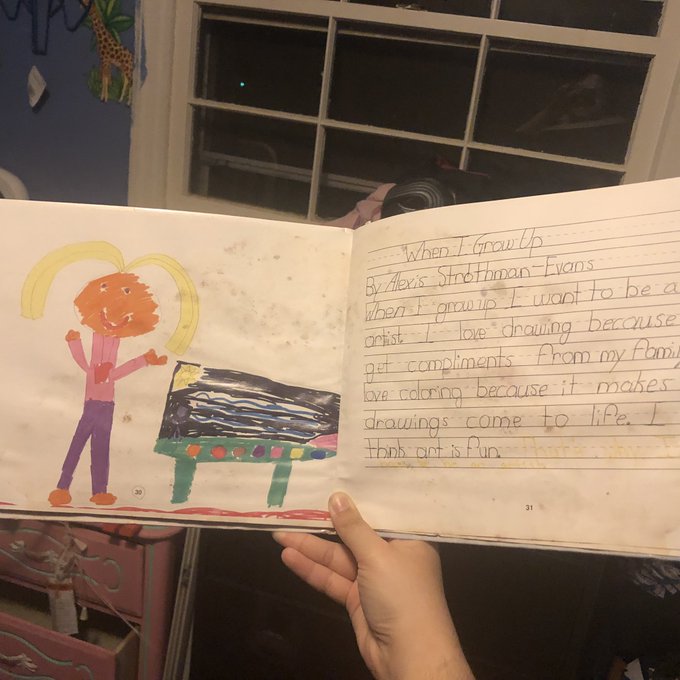 When I Grow Up
By Alexis Strothman-Evans
When I grow up I want to be a
artist. I love drawing because
get compliments from my family
love coloring because it makes
drawings come to life. I
think art is fun. That's why I
30
31